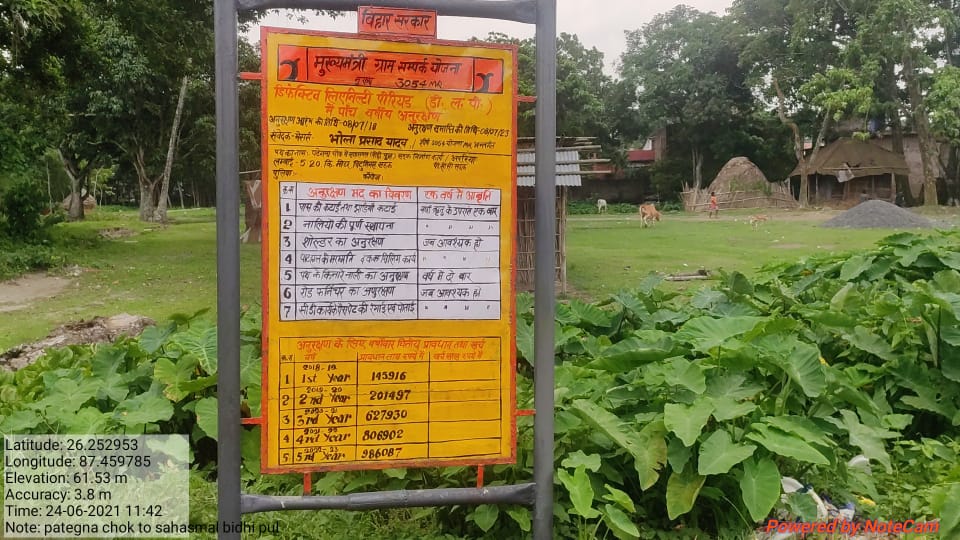 बिहार सरकार
मुख्यमंत्री ग्राम सम्पर्क योजना
3054 MR
डिफेक्टिव लिएबिल्टी पीरियड (डी. ल. पी.)
में पाँच वर्षीय अनुरक्षण
अनुरक्षण आरंभ की तिथि-08/07/18 अनुरक्षण समाप्ति की तिथि-08/07/23
संवेदक- मेसर्स- भोला प्रसाद यादव
लम्बाई- 5.20 कि. मीटर
पुलिया-
क्र.सं अनुरक्षण मद का विवरण एक वर्ष में आवृति
1 घास की कटाई तथा झाड़ियों कटाई वर्षा ऋतु के उपरांत एक बार
2 नालियों की पूर्ण स्थापना " " "
3 शोल्डर का अनुरक्षण जब आवश्यक हो
4 " " "
5 पथ के किनारे नाली का अनुरक्षण वर्ष में दो बार
6 रोड फर्निचर का अनुरक्षण जब आवश्यक हो
7 " " "
अनुरक्षण के लिए वर्षवार वित्तीय प्रावधान तथा खर्च
क्र.सं वर्ष प्रावधान लाख रुपये में खर्च लाख रुपये में
2018-19
1 1st Year 145916
2019-20
2 2nd Year 201497
3 3rd Year 627930
4 4rd Year 806902
5 5rd Year 986087
Latitude: 26.252953
Longitude: 87.459785
Elevation: 61.53 m
Accuracy: 3.8 m
Time: 24-06-2021 11:42
Note: pategna chok to sahasmal bidhi pul
Powered by NoteCam